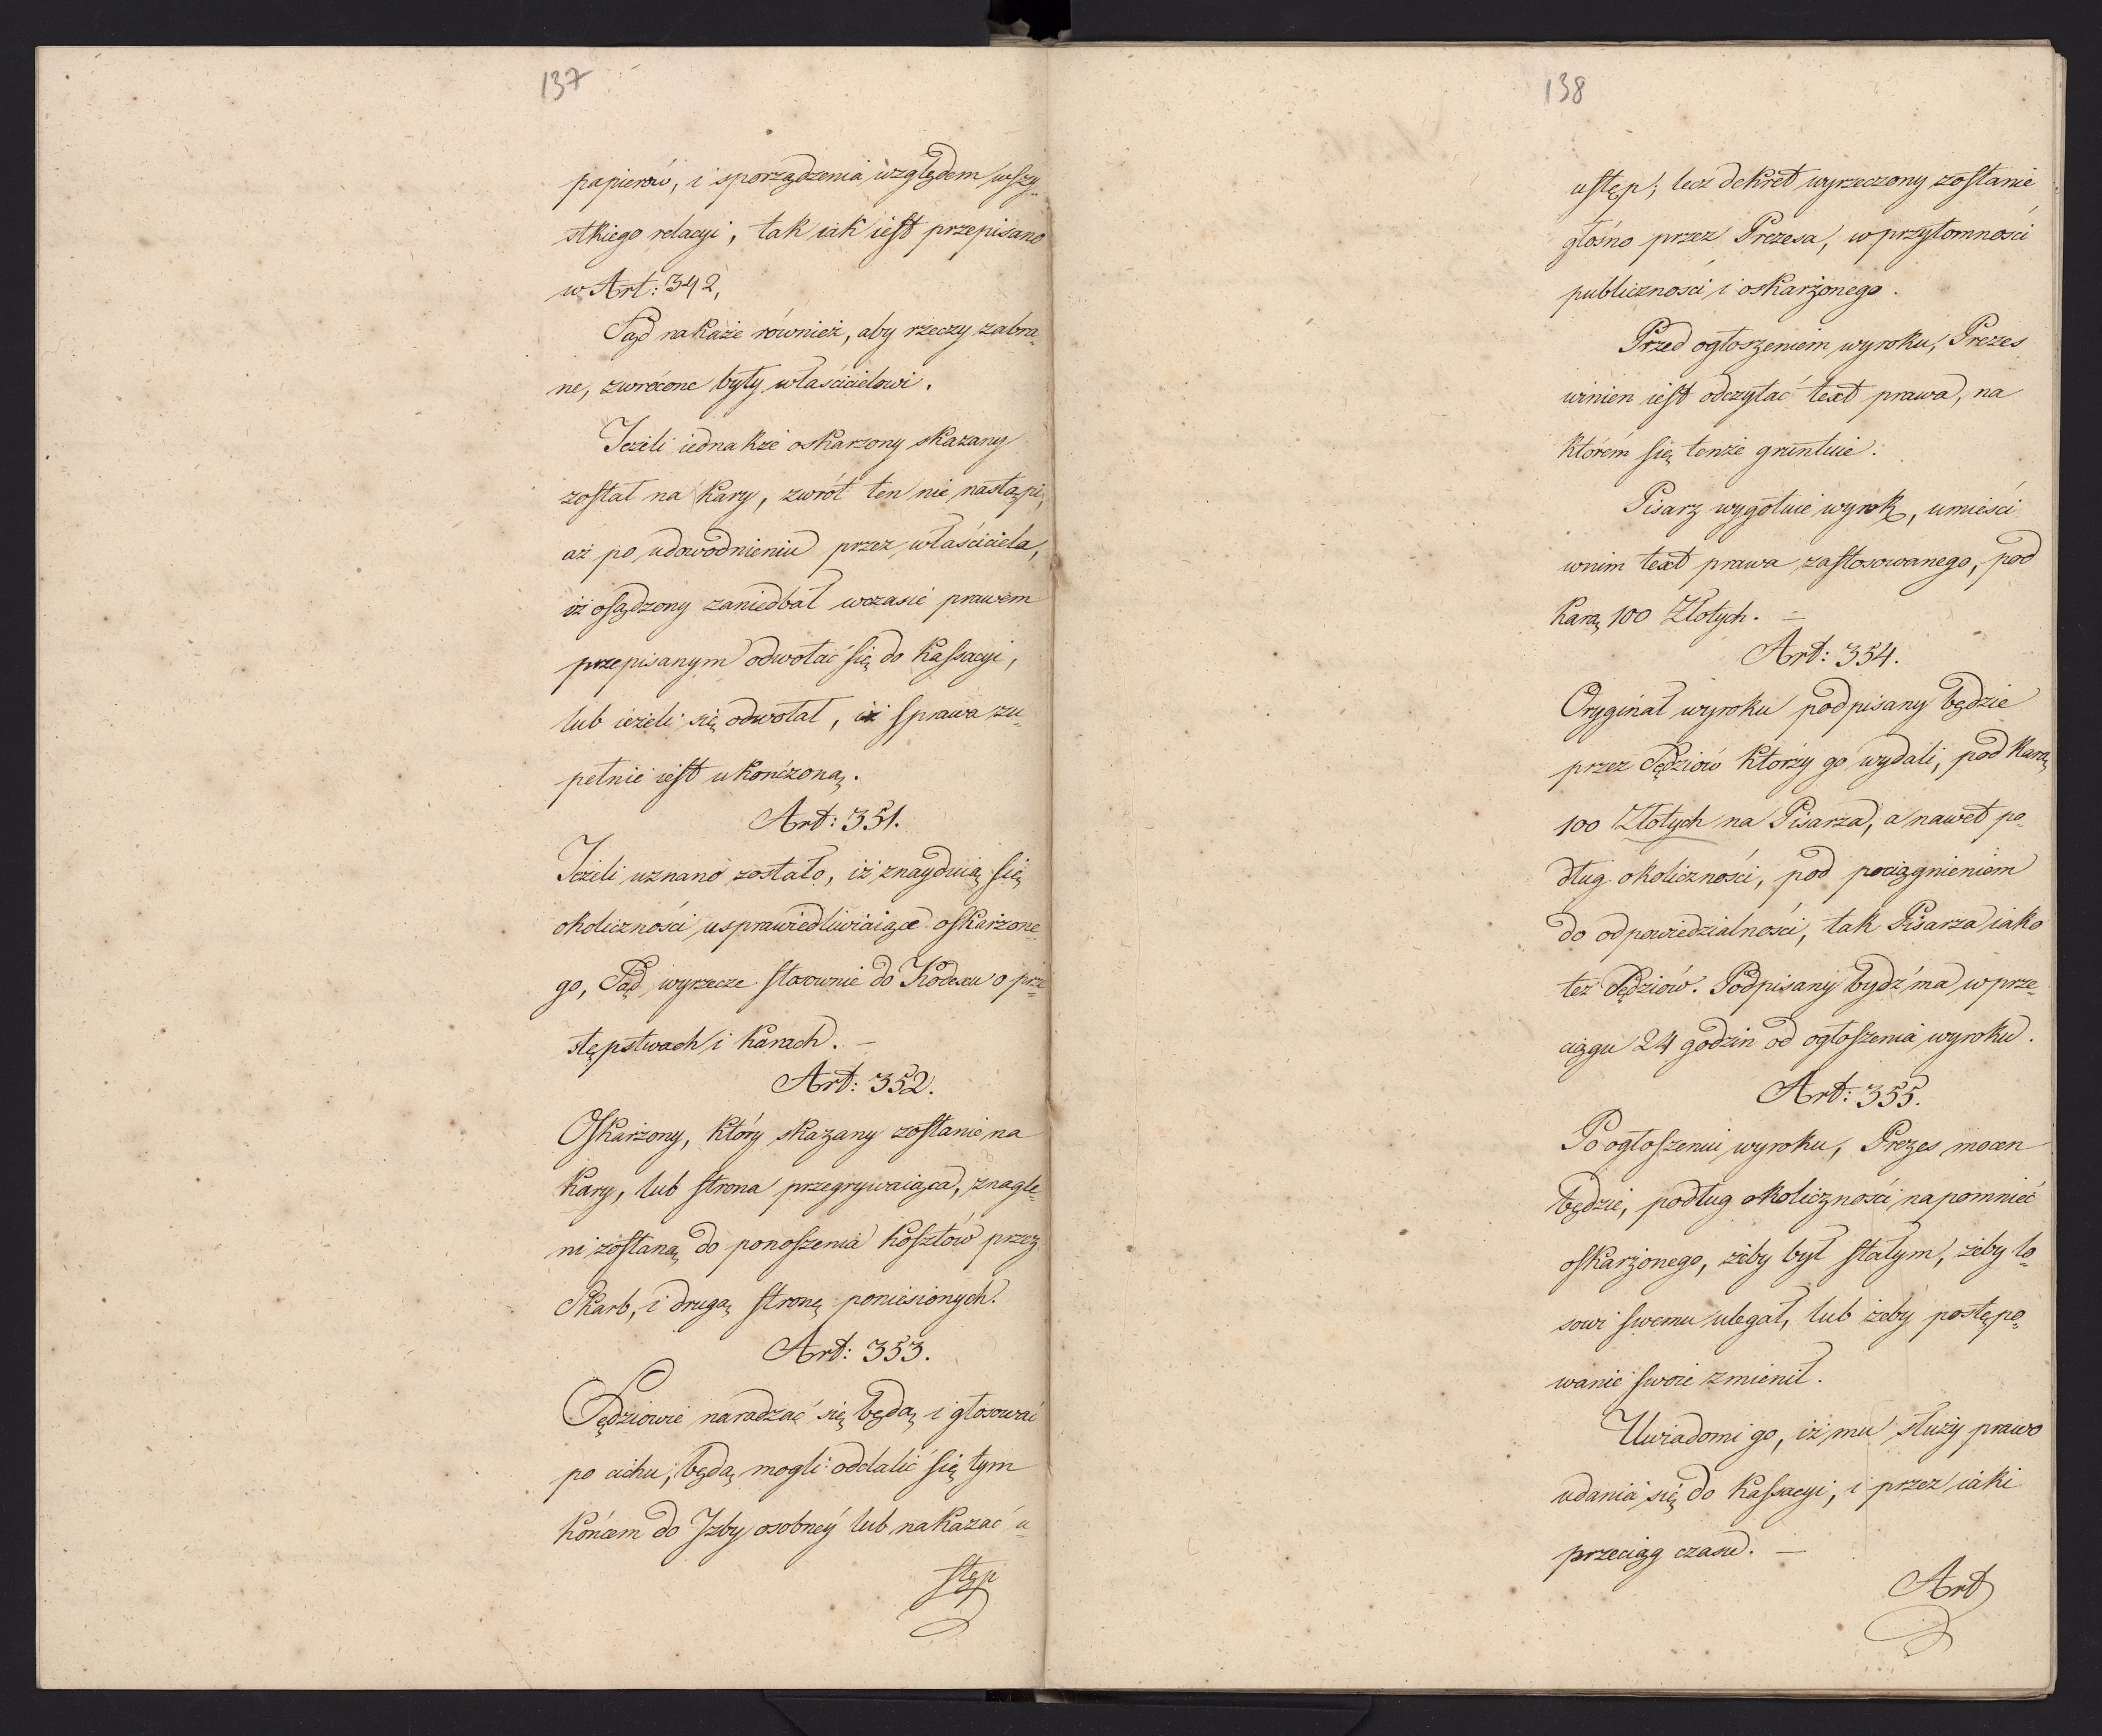 137
papierów, i sporządzenia względem wszy„
stkiego relacyi, tak iak iest przepisano
w Art: 342,
Sąd nakaże również, aby rzeczy zabra„
ne, zwrócone były właścicielowi.
Jeżeli iednakże oskarzony skazany
został na kary, zwrót ten nie nastąpi,
aż po udowodnieniu przez właściciela,
iż osądzony zaniedbał wczasie prawem
przepisanym odwołać się do Kassacyi,
lub ieżeli się odwołał, iż sprawa zu„
pełnie iest ukończoną.
Art: 351.
Jeżeli uznano zostało, iż znayduią się
okoliczności usprawiedliwiaiące oskarżone„
go, Sąd wyrzecze stosownie do Kodexu o prze„
stępstwach i karach. —
Art: 352.
Oskarżony, który skazany zostanie na
kary, lub strona przegrywaiąca, znagle„
ni zostaną do ponoszenia kosztów przez
Skarb, i drugą stronę poniesionych.
Art: 353.
Sędziowie naradzać się będą i głosować
po cichu; będą mogli oddalić się tym
końcem do Izby osobney lub nakazać u„
stęp
138
ustęp; lecz dekret wyrzeczony zostanie
głośno przez Prezesa, w przytomności
publiczności i oskarżonego.
Przed ogłoszeniem wyroku, Prezes
winien iest odczytać text prawa, na
którém się tenże gruntuie.
Pisarz wygotuie wyrok, umieści
wnim text prawa zastosowanego, pod
karą 100 Złotych. —
Art: 354.
Oryginał wyroku podpisany będzie
przez Sędziów którzy go wydali, pod karą
100 Złotych na Pisarza, a nawet po„
dług okoliczności, pod pociągnieniem
do odpowiedzialności, tak Pisarza iako
też Sędziów. Podpisany bydź ma w prze„
ciągu 24 godzin od ogłoszenia wyroku.
Art: 355.
Po ogłoszeniu wyroku, Prezes mocen
będzie, podług okoliczności napomnieć
oskarżonego, żeby był stałym, żeby lo„
sowi swemu ulegał, lub żeby postępo„
wanie swoie zmienił.
Uwiadomi go, iż mu służy prawo
udania się do Kassacyi, i przez iaki
przeciąg czasu. —
Art